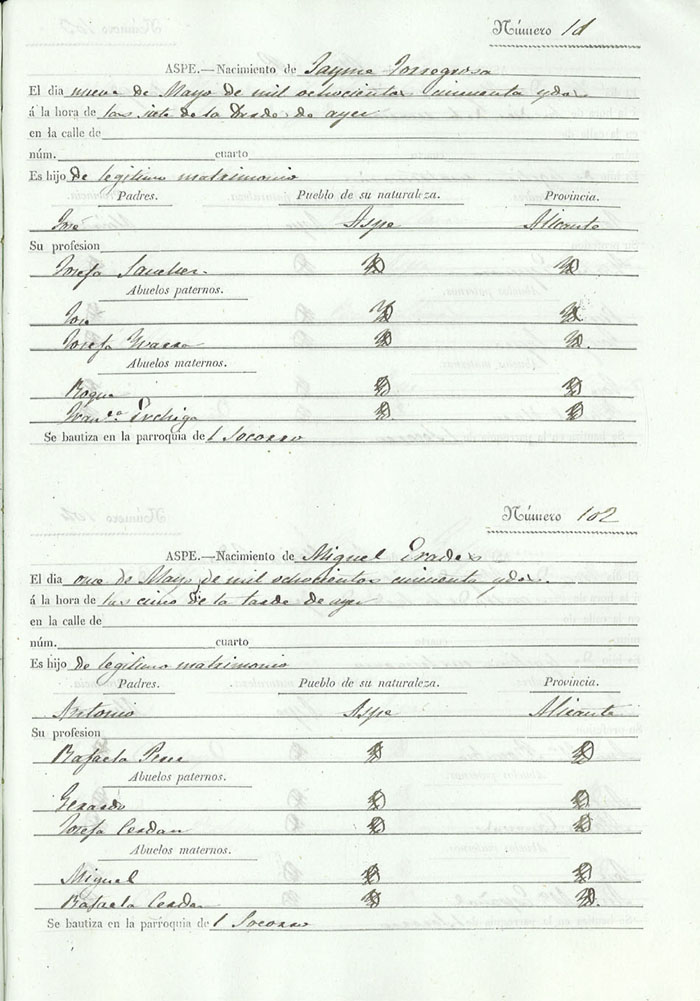 Número 1d
ASPE.—Nacimiento de Jayme Torregrosa
El dia nueve de Mayo de mil ochocientos cincuenta y dos
á la hora de las siete de la tarde de ayer
en la calle de
núm. cuarto
Es hijo de legitimo matrimonio
Padres. Pueblo de su naturaleza. Provincia.
Jose Aspe Alicante
Su profesion
Josefa Sanchez
Abuelos paternos.
Jose
Josefa
Abuelos maternos.
Roque
Fran.ca
Se bautiza en la parroquia del Socorro
Número 102
ASPE.—Nacimiento de Miguel Erades
El dia once de Mayo de mil ochocientos cincuenta y dos
á la hora de las cinco de la tarde de ayer
en la calle de
núm. cuarto
Es hijo de legitimo matrimonio
Padres. Pueblo de su naturaleza. Provincia.
Antonio Aspe Alicante
Su profesion
Rafaela
Abuelos paternos.
Gerardo
Josefa Cerdan
Abuelos maternos.
Miguel
Rafaela Cerdan
Se bautiza en la parroquia del Socorro